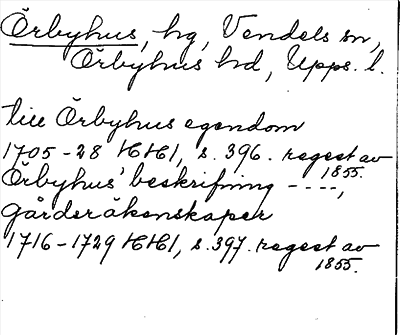 Örbyhus, hg, Vendels sn,
Örbyhus hd, Upps. l.
till Örbyhus egendom
1705-28 HHI, s. 396. regest av
1855.
Örbyhus' beskrifning ----,
Gårderäkenskaper
1716-1729 HHI, s. 397. regest av
1855.